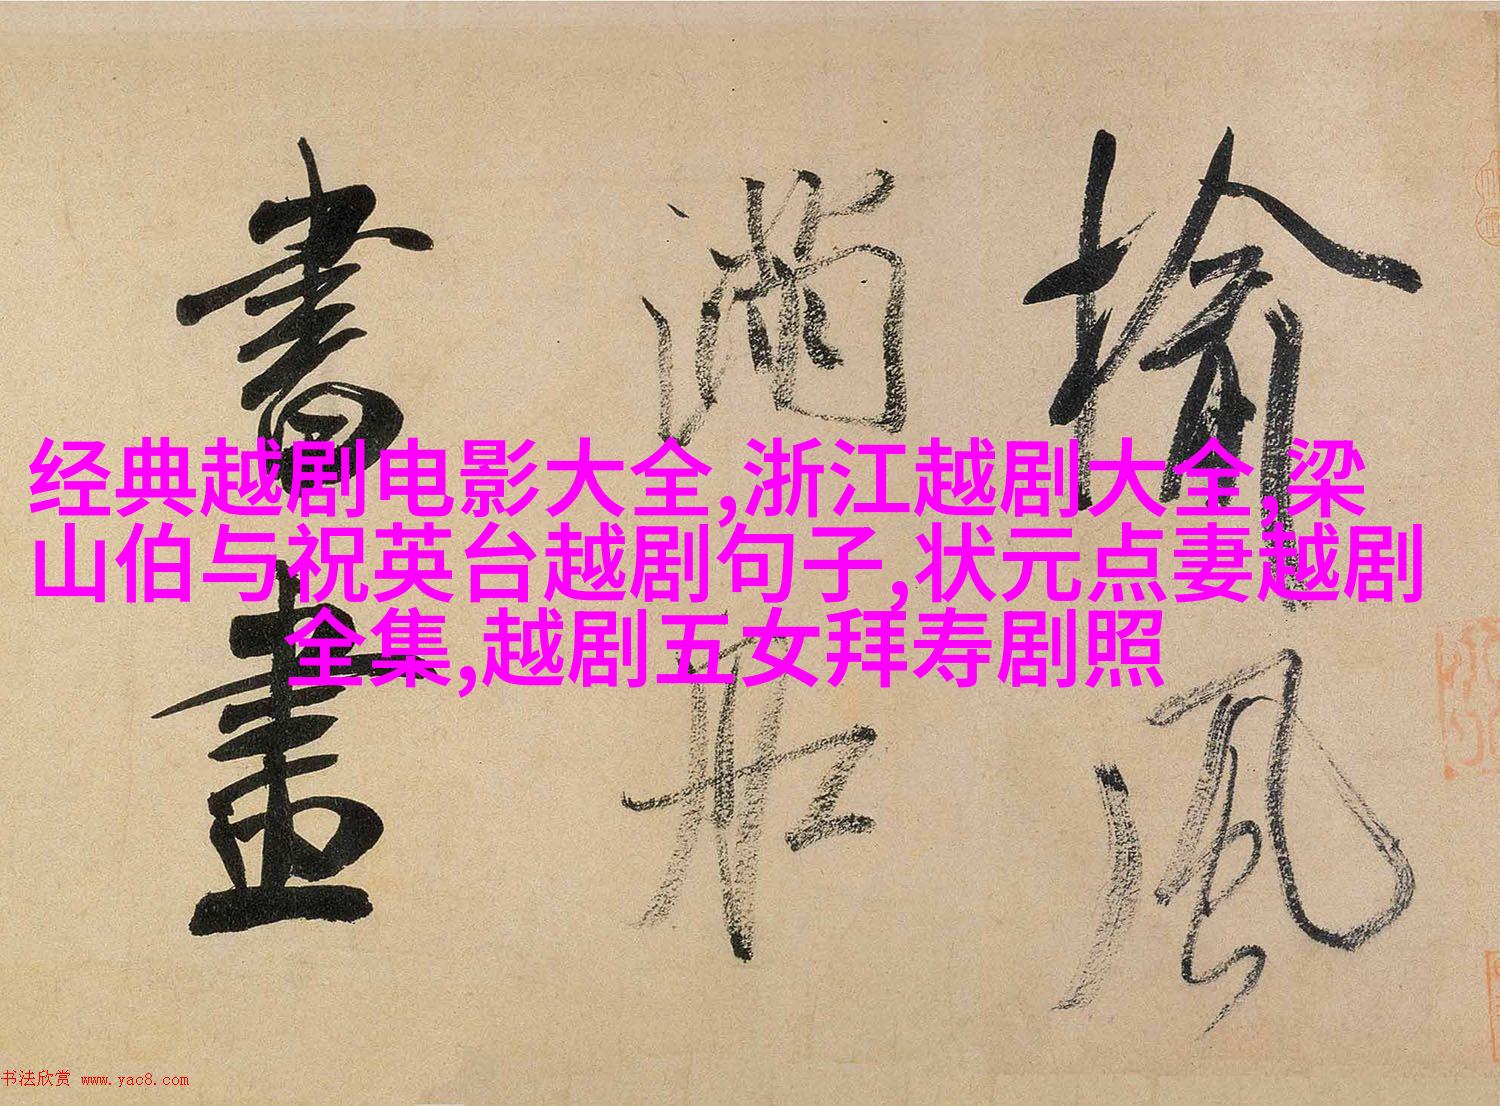 经典越剧电影大全,浙江越剧大全,梁
山伯与祝英台越剧句子,状元点妻越剧
全集,越剧五女拜寿剧照
風
書畫
书法欣赏 www.yac8.com